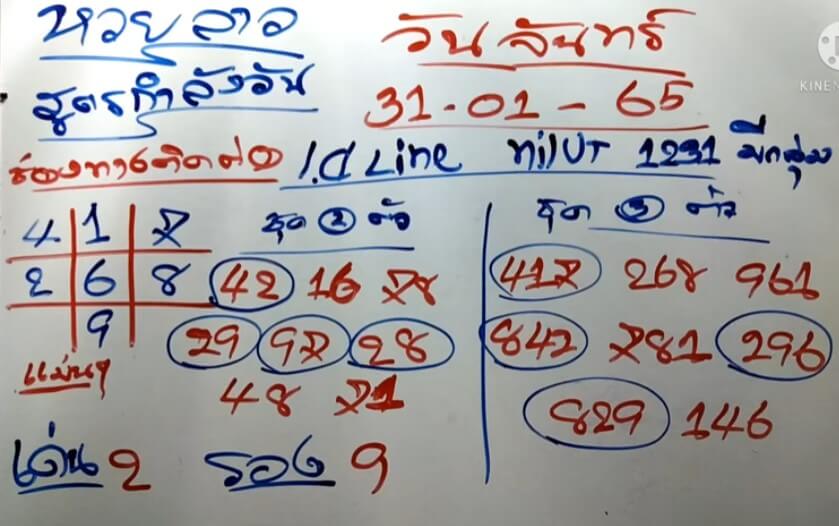 หวยลาว
วันจันทร์
KINEM
สูตรกำลังวัน
31-01-65
ช่องทางติดต่อ I.d Line 1231 มีกลุ่ม
4 1 7
2 6 8
9
แม่นๆ
ชุด 2 ตัว
42 16 78
29 97 28
48 71
ชุด 3 ตัว
417 268 961
842 781 296
829 146
เด่น 2 รอง 9